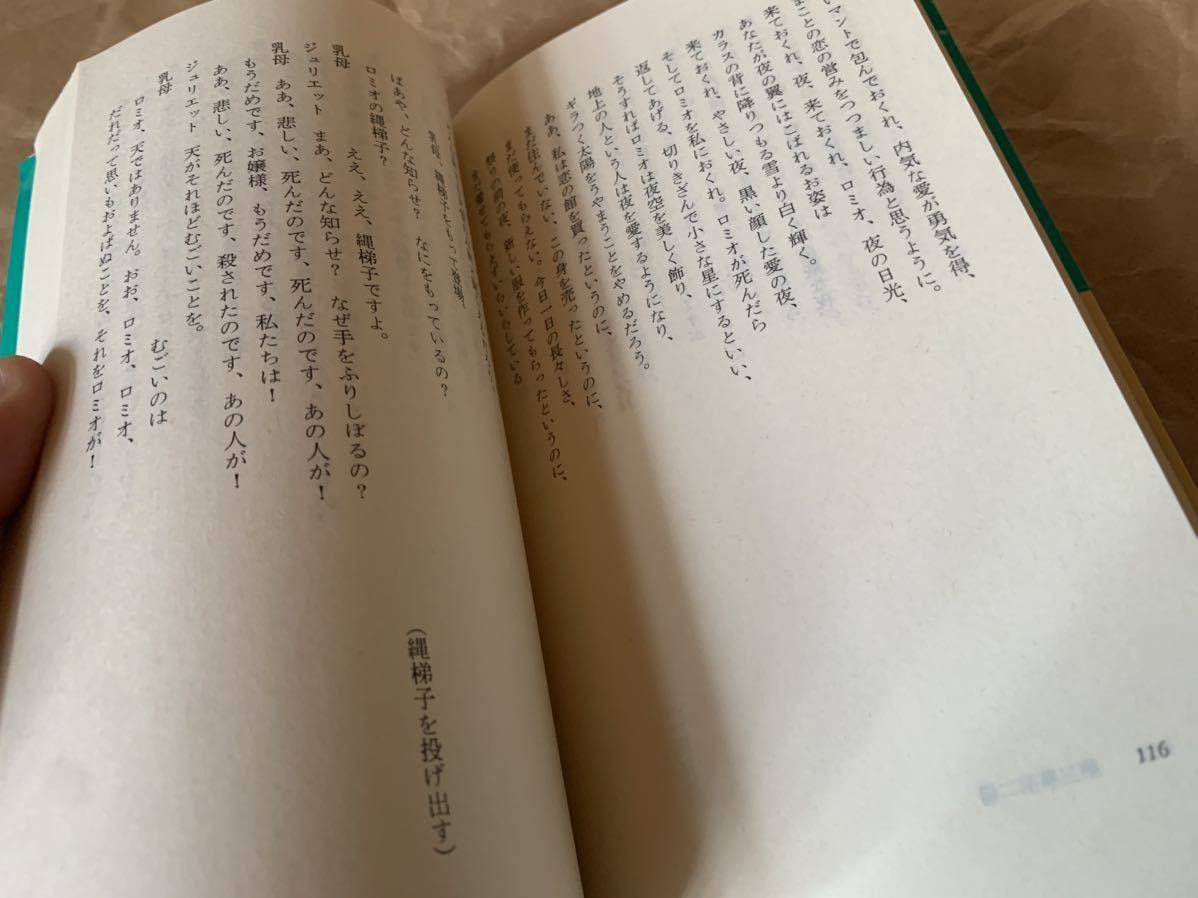 マントで包んでおくれ、内気な愛が勇気を得、
まことの恋の営みをつつましい行為と思うように。
来ておくれ、夜、来ておくれ、ロミオ、夜の日光、
あなたが夜の翼にはこばれるお姿は
カラスの背に降りつもる雪より白く輝く。
来ておくれ、やさしい夜、黒い顔した愛の夜、
そしてロミオを私におくれ。ロミオが死んだら
返してあげる、切りきざんで小さな星にするといい、
そうすればロミオは夜空を美しく飾り、
地上の人という人は夜を愛するようになり、
ギラつく太陽をうやまうことをやめるだろう。
ああ、私は恋の館を買ったというのに、
まだ住んでいない、この身を売ったというのに、
まだ使ってもらえない。今日一日の長々しさ、
祭りの前の夜、新しい服を作ってもらったというのに、
まだ着せてもらえずいらいらしている
116
乳母、縄梯子をもって登場。
ばあや、どんな知らせ? なにをもっているの?
ロミオの縄梯子?
乳母 ええ、ええ、縄梯子ですよ。
(縄梯子を投げ出す)
ジュリエット まあ、どんな知らせ? なぜ手をふりしぼるの?
乳母 ああ、悲しい、死んだのです、死んだのです、あの人が!
もうだめです、お嬢様、もうだめです、私たちは!
ああ、悲しい、死んだのです、殺されたのです、あの人が!
ジュリエット 天がそれほどむごいことを。
乳母 むごいのは
ロミオ、天ではありません。おお、ロミオ、ロミオ、
だれだって思いもおよばぬことを、それをロミオが!